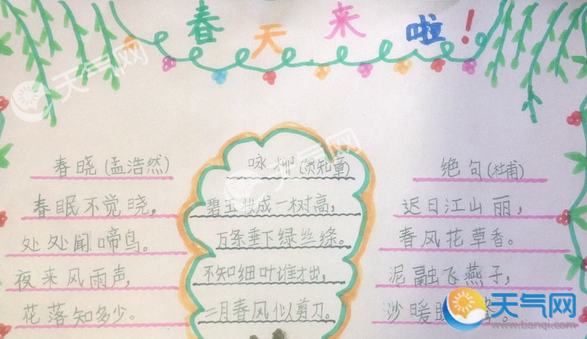 春天来啦!
春晓(孟浩然)
春眠不觉晓,
处处闻啼鸟。
夜来风雨声,
花落知多少。
咏柳(贺知章)
碧玉妆成一树高,
万条垂下绿丝绦。
不知细叶谁才出,
二月春风似剪刀。
绝句(杜甫)
迟日江山丽,
春风花草香。
泥融飞燕子,
沙暖
天气网
www.tianqi.com
天气网
天气网